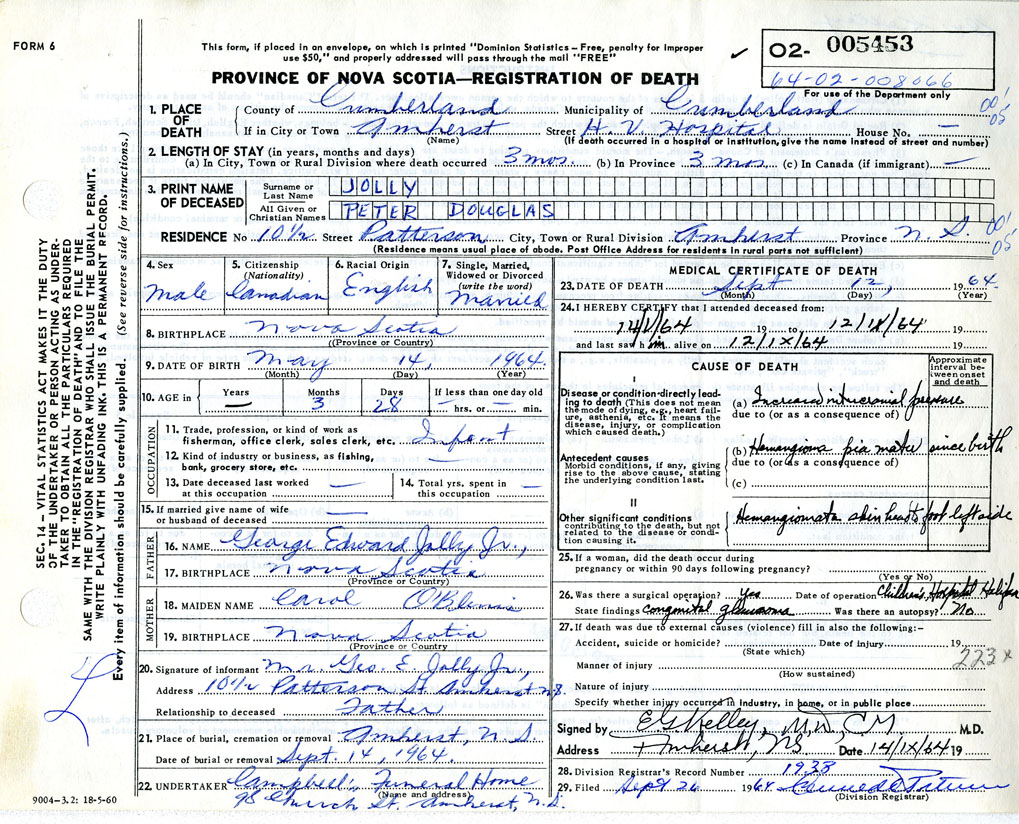 FORM 6
This form, if placed in an envelope, on which is printed "Dominion Statistics – Free, penalty for improper
use $50," and properly addressed will pass through the mail "FREE"
PROVINCE OF NOVA SCOTIA—REGISTRATION OF DEATH
✓ O2- 005453
64-02-008066
For use of the Department only
1. PLACE OF DEATH
County of Cumberland Municipality of Cumberland
If in City or Town Amherst Street H. V. Hospital House No. —
(Name) (If death occurred in a hospital or institution, give the name instead of street and number)
2. LENGTH OF STAY (in years, months and days)
(a) In City, Town or Rural Division where death occurred 3 mos. (b) In Province 3 mos. (c) In Canada (if immigrant) —
3. PRINT NAME OF DECEASED
Surname or Last Name JOLLY
All Given or Christian Names PETER DOUGLAS
RESIDENCE No 10½ Street Patterson City, Town or Rural Division Amherst Province N. S.
(Residence means usual place of abode. Post Office Address for residents in rural parts not sufficient)
4. Sex Male
5. Citizenship (Nationality) Canadian
6. Racial Origin English
7. Single, Married, Widowed or Divorced (write the word) Married
8. BIRTHPLACE Nova Scotia
((Province or Country)
9. DATE OF BIRTH May 14, 1964
(Month) (Day) (Year)
10. AGE in Years — Months 3 Days 28 If less than one day old — hrs. or — min.
OCCUPATION
11. Trade, profession, or kind of work as
fisherman, office clerk, sales clerk, etc. Infant
12. Kind of industry or business, as fishing,
bank, grocery store, etc. —
13. Date deceased last worked
at this occupation —
14. Total yrs. spent in
this occupation —
15. If married give name of wife
or husband of deceased —
FATHER
16. NAME George Edward Jolly Jr.,
17. BIRTHPLACE Nova Scotia
(Province or Country)
MOTHER
18. MAIDEN NAME Carol
19. BIRTHPLACE Nova Scotia
(Province or Country)
20. Signature of informant Mr. Geo. E. Jolly Jr.,
Address 10½ Patterson St. Amherst N.S.
Relationship to deceased Father
21. Place of burial, cremation or removal Amherst, N. S.
Date of burial or removal Sept. 14, 1964.
22. UNDERTAKER Campbell's Funeral Home
(Name and address)
98 Church St. Amherst, N.S.
9004-3.2: 18-5-60
MEDICAL CERTIFICATE OF DEATH
23. DATE OF DEATH Sept 12, 1964.
(Month) (Day) (Year)
24. I HEREBY CERTIFY that I attended deceased from:
14/V/64 19 to 12/IX/64 19
and last saw him alive on 12/IX/64 19
CAUSE OF DEATH
Approximate interval between onset and death
I
Disease or condition directly leading to death (This does not mean the mode of dying, e.g., heart failure, asthenia, etc. It means the disease, injury, or complication which caused death.)
(a) Increased intracranial pressure
due to (or as a consequence of)
Antecedent causes
Morbid conditions, if any, giving rise to the above cause, stating the underlying condition last.
(b) Hemangioma pia mater since birth
due to (or as a consequence of)
(c)
II
Other significant conditions
contributing to the death, but not related to the disease or condition causing it.
Hemangiomata skin head to foot left side
25. If a woman, did the death occur during
pregnancy or within 90 days following pregnancy?
(Yes or No)
26. Was there a surgical operation? Yes Date of operation Children's Hospital Halifax
State findings congenital glaucoma Was there an autopsy? No
27. If death was due to external causes (violence) fill in also the following:-
Accident, suicide or homicide? Date of injury 19
(State which)
223 x
Manner of injury
(How sustained)
Nature of injury
Specify whether injury occurred in industry, in home, or in public place
Signed by E. G. Kelley, M.D., C.M. M.D.
Address Amherst, NS Date 14/IX/64 19
28. Division Registrar's Record Number 1933
29. Filed Sept 26 1964
(Division Registrar)
SEC. 14—VITAL STATISTICS ACT MAKES IT THE DUTY
OF THE UNDERTAKER OR PERSON ACTING AS UNDER-
TAKER TO OBTAIN ALL THE PARTICULARS REQUIRED
IN THE "REGISTRATION OF DEATH" AND TO FILE THE
SAME WITH THE DIVISION REGISTRAR WHO SHALL ISSUE THE BURIAL PERMIT.
WRITE PLAINLY WITH UNFADING INK. THIS IS A PERMANENT RECORD.
Every item of information should be carefully supplied. (See reverse side for instructions.)